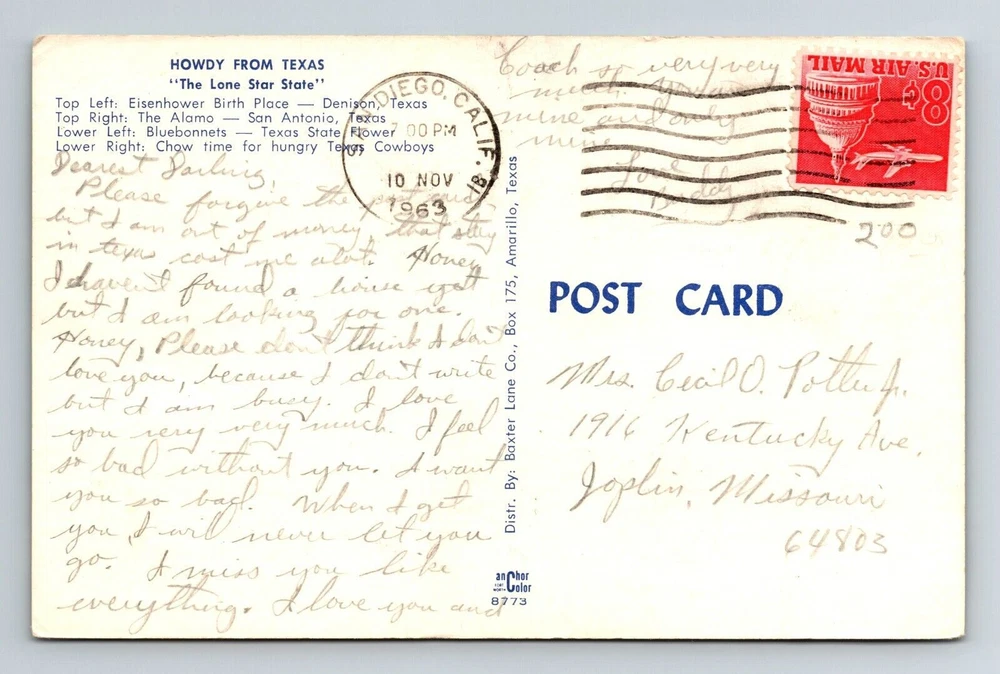 HOWDY FROM TEXAS
"The Lone Star State"
Top Left: Eisenhower Birth Place — Denison, Texas
Top Right: The Alamo — San Antonio, Texas
Lower Left: Bluebonnets — Texas State Flower
Lower Right: Chow time for hungry Texas Cowboys
Dearest Darling,
Please forgive the post card
but I am out of money. that stay
in texas cost me alot. Honey
I haven't found a house yet
but I am looking for one.
Honey, Please don't think I don't
love you, because I don't write
but I am busy. I love
you very very much. I feel
so bad without you. I want
you so bad. When I get
you, I will never let you
go. I miss you like
everything. I love you and
Coach so very very
much. You are
mine and only
mine
Love
Buddy
SAN DIEGO, CALIF. 81
7 00 PM
10 NOV
1963
U.S. AIR MAIL
8¢
200
Distr. By: Baxter Lane Co., Box 175, Amarillo, Texas
POST CARD
Mrs. Cecil O. Potter Jr.
1916 Kentucky Ave.
Joplin, Missouri
64803
anChor
Color
8773